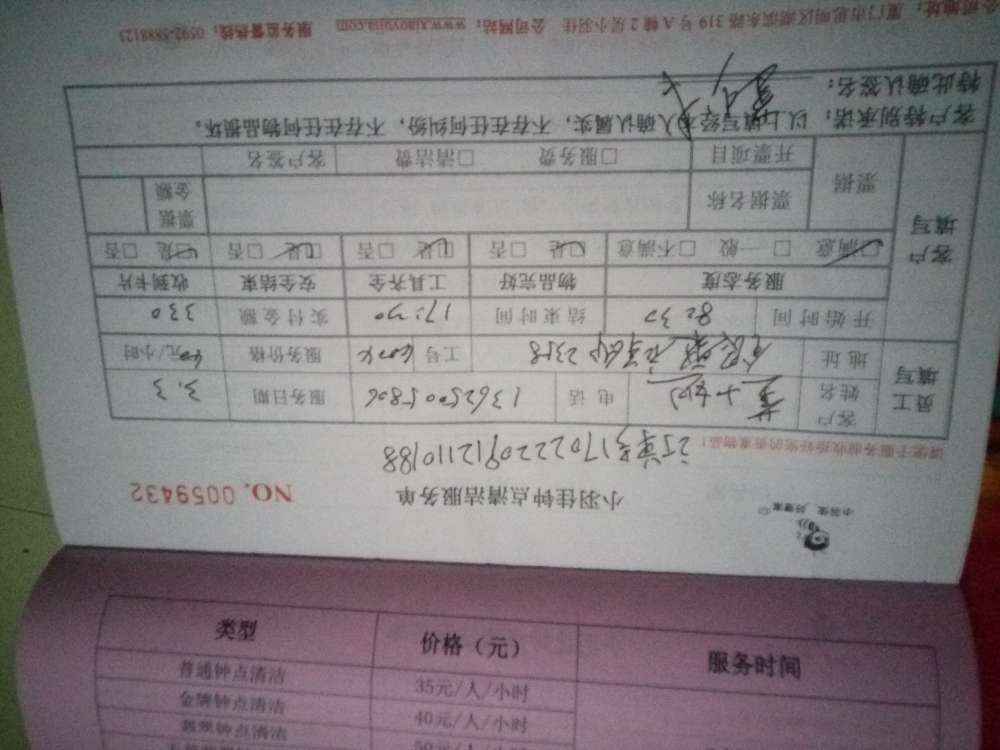 小羽佳钟点清洁服务单
NO. 0059432
订单号170222209121110188
请您于服务前收拾好您的贵重物品！
员工填写
客户姓名 电话 13625005806 服务日期 3.3
地址 2358 工号 服务价格 元/小时
开始时间 8:30 结束时间 17:30 实付金额 330
客户填写
服务态度 物品完好 工具齐全 安全结束 收到卡片
□满意 □一般 □不满意 □是 □否 □是 □否 □是 □否 □是 □否
票据 票据名称 票据金额
开票项目 □服务费 □清洁费 客户签名
客户特别承诺：以上填写经本人确认属实，不存在任何纠纷，不存在任何物品损坏。
特此确认签名：
公司地址：厦门市思明区湖滨东路319号A幢2层小羽佳 公司网站：www.xiaoyujia.com 服务监督热线：0592-5888123
类型 价格（元） 服务时间
普通钟点清洁 35元/人/小时
金牌钟点清洁 40元/人/小时
翡翠钟点清洁 50元/人/小时